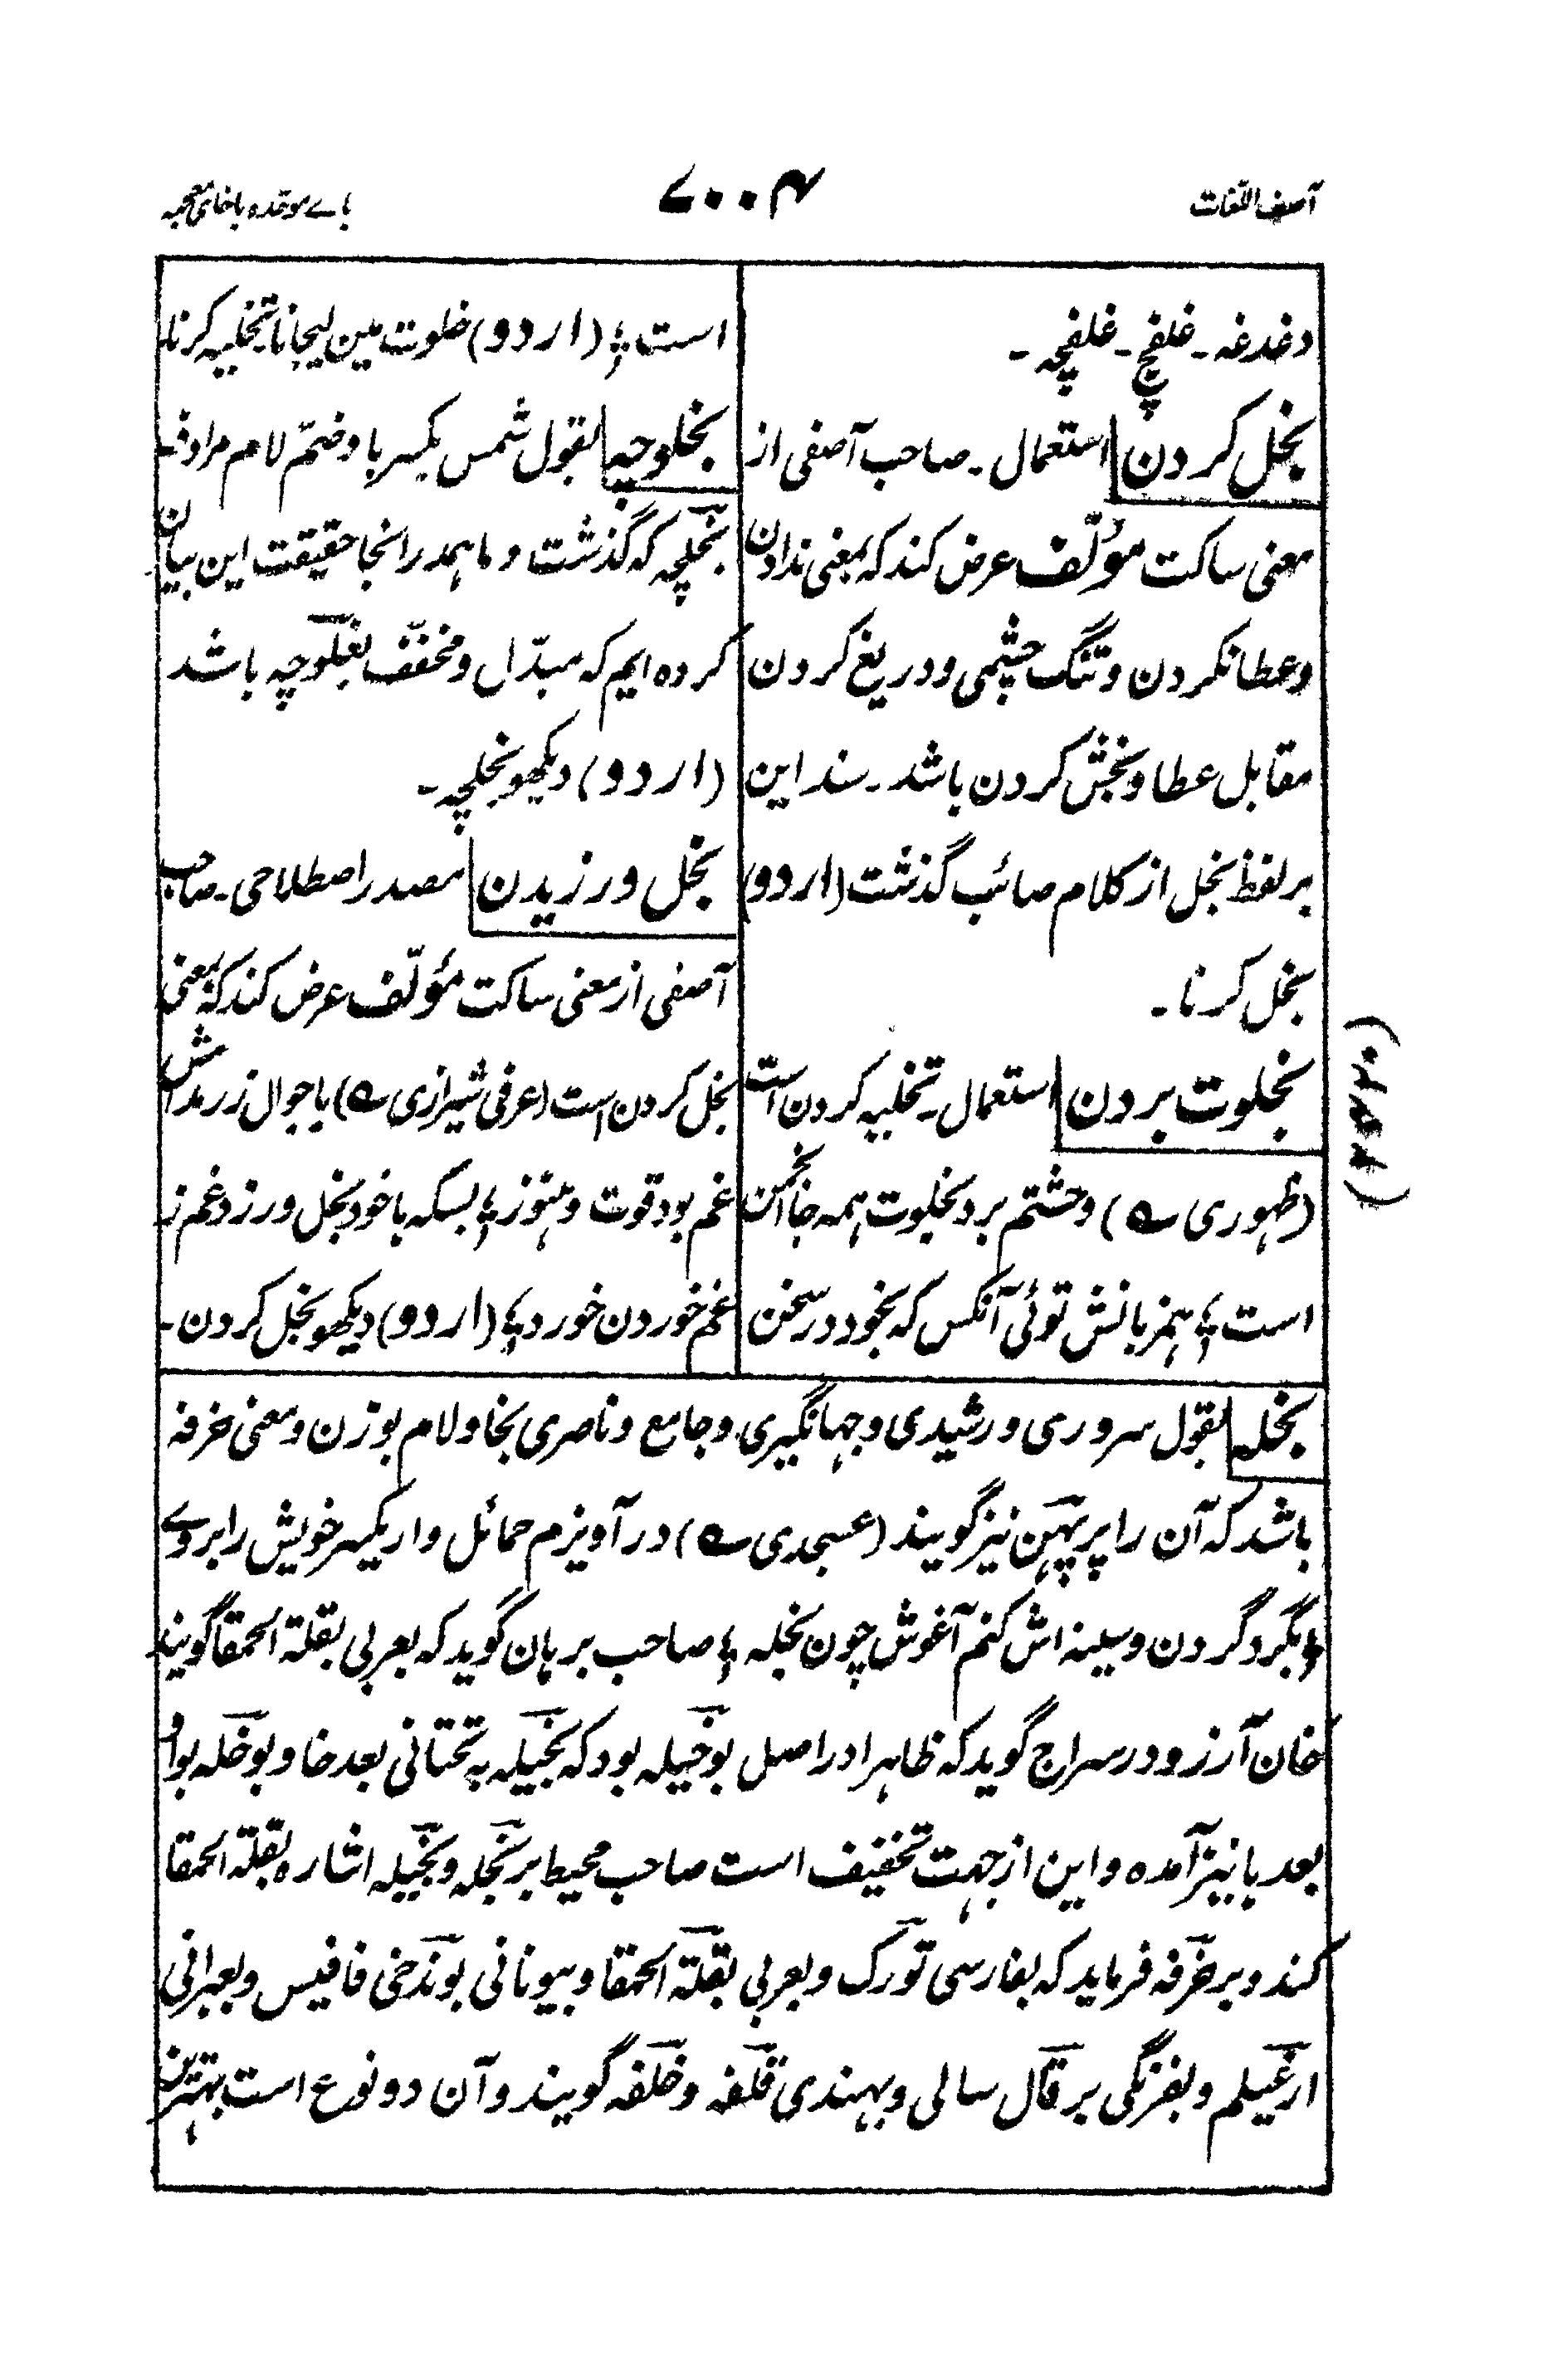 آصف اللّغات
۷۰۰۴
بائے موحّدہ باخائے معجمہ
دغدغہ ۔ غلفچ ۔ غلفچہ ۔
بخل کردن استعمال ۔ صاحب آصفی از
معنی ساکت مؤلّف عرض کند کہ بمعنی ندادن
و عطا نکردن و تنگ چشمی و دریغ کردن
مقابل عطا و بخش کردن باشد ۔ سند این
بر لفظ بخل از کلام صائب گذشت (اردو)
بخل کرنا ۔
بخلوت بردن استعمال ۔ تخلیہ کردن است
(ظہوری ؎) وحشتم برد بخلوت ہمہ جا انجمن
است ؛ ہمزبانش توئی آنکس کہ بخود در سخن
است ؛ (اردو) خلوت مین لیجانا تخلیہ کرنا
بخلوچہ بقول شمس بکسر با و ضمّ لام مرادف
بخلچہ کہ گذشت و ما ہمدرانجا حقیقت این بیان
کردہ ایم کہ مبدّل و مخفّف بغلوچہ باشد
(اردو) دیکھو بخلچہ ۔
بخل ورزیدن مصدر اصطلاحی ۔ صاحب
آصفی از معنی ساکت مؤلّف عرض کند کہ بمعنی
بخل کردن است (عرفی شیرازی ؎) با جوال زر مدامش
غم بود قوت و ہنوز ؛ بسکہ با خود بخل ورزد غم ز
غم خوردن خورد ؛ (اردو) دیکھو بخل کردن ۔
بخلہ بقول سروری و رشیدی و جہانگیری و جامع و ناصری بخا و لام بوزن و معنی خرفہ
باشد کہ آن را پرپہن نیز گویند (عسجدی ؎) در آویزم حمائل وار یکسر خویش را بروے
؛ بگرد گردن و سینہ اش کنم آغوش چون بخلہ ؛ صاحب برہان گوید کہ بعربی بقلۃ الحمقا گویند
خان آرزو در سراج گوید کہ ظاہرا در اصل بوخیلہ بود کہ بخیلہ بہ تحتانی بعد خا و بوخلہ بواو
بعد با نیز آمدہ و این از جہت تخفیف است صاحب محیط بر بخلہ و بخیلہ اشارہ بقلۃ الحمقا
کند و بر خرفہ فرماید کہ بفارسی تورک و بعربی بقلۃ الحمقا و بیونانی بوندخی فافیس و بعبرانی
ارغیلم و بفرنگی برقال سالی و بہندی قلفہ و خلفہ گویند و آن دو نوع است بہترین